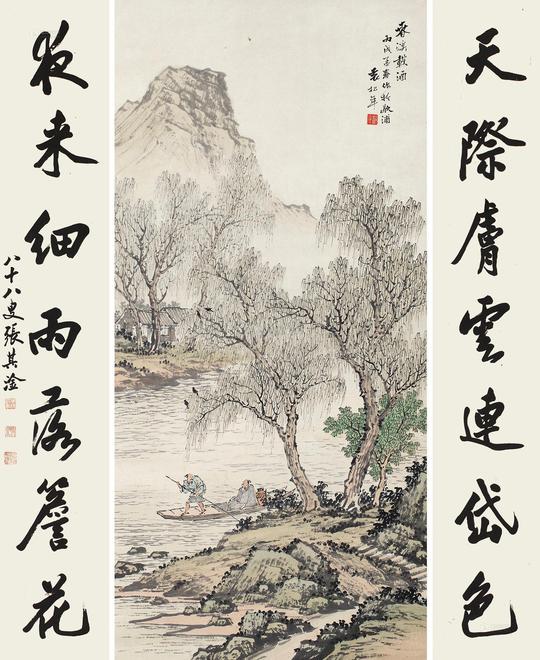 天際膚雲連岱色
春溪載酒
丙戌孟春作於歇浦
袁松年
夜来細雨落簷花
八十八叟張其淦